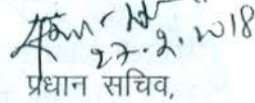 27.2.2018
प्रधान सचिव,